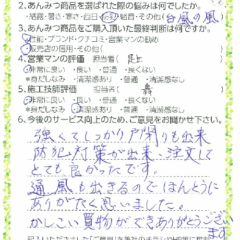 2.あんみつ商品を選ばれた際の悩みは何でしたか。
結露・暑さ・寒さ・西日・結音・その他( 台風の風
3.あんみつ商品をご購入頂いた最終判断は何ですか。
性能・ブランド・クチコミ・営業マンの勧め
販売店の信用・その他(
4.営業マンの評価 担当者
非常に良い・良い・普通・良くない
身だしなみ 清潔感あり・普通・清潔感なし
5.施工技術評価 担当者
非常に良い・良い・普通・良くない
身だしなみ 清潔感あり・普通・清潔感なし
6.今後のサービス向上のため、ご意見をお聞かせ下さい。
強くてしっかり戸締りも出来
防犯対策が出来、注文して
とても良かったです。
通風も出きるのでほんとうに
ありがたく思いました。
かしこい買物ができありがとうござい